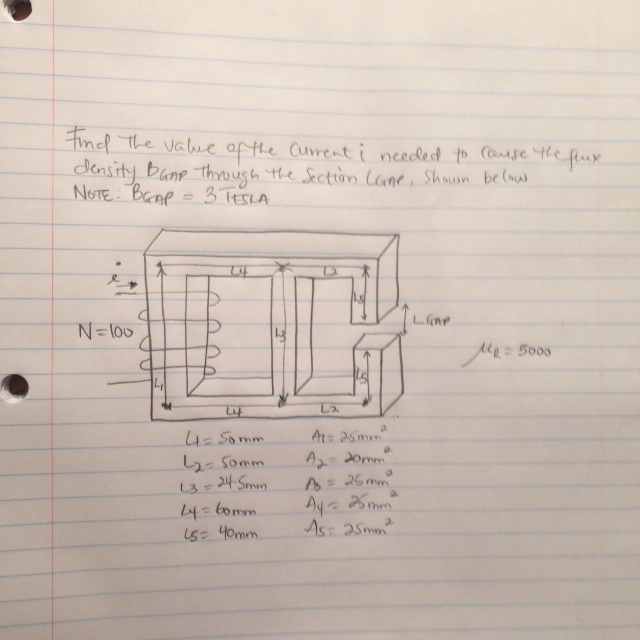 Find the value of the current i needed to cause the flux
density BGAP through the section LGAP, shown below
NOTE: BGAP = 3 TESLA
L4 L2
i
L5
N=100 L3 LGAP
μR = 5000
L1 L5
L4 L2
L1 = 50mm A1 = 25mm²
L2 = 50mm A2 = 20mm²
L3 = 24.5mm A3 = 25mm²
L4 = 60mm A4 = 25mm²
L5 = 40mm A5 = 25mm²